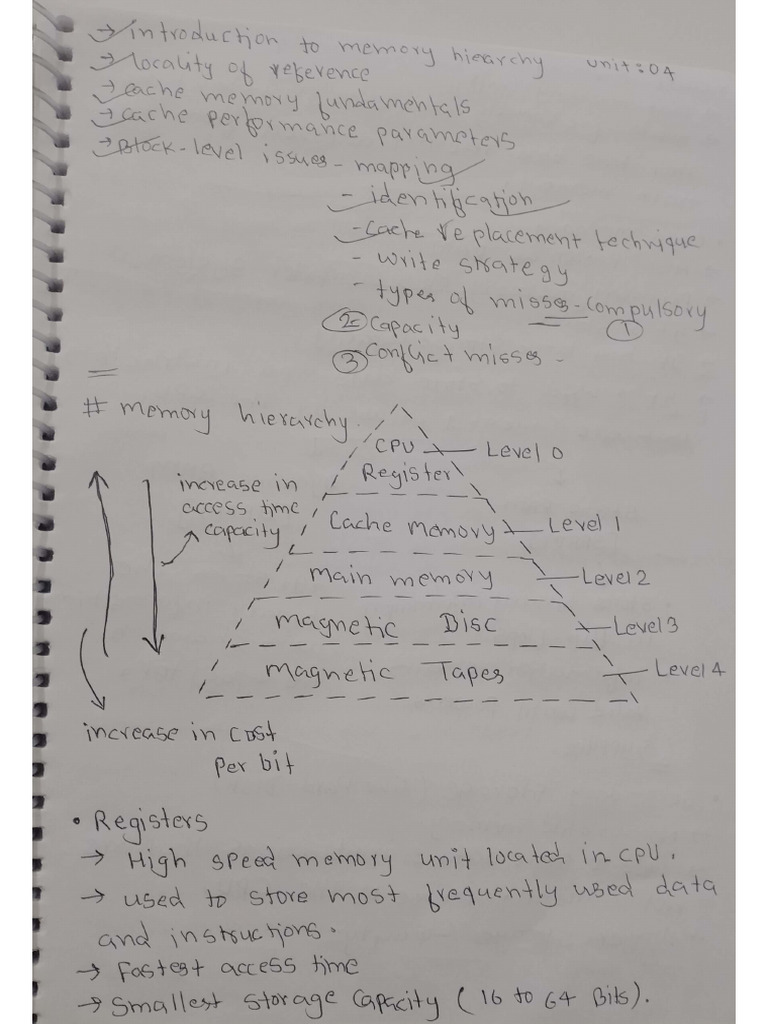 → introduction to memory hierarchy unit:04
→ locality of reference
→ cache memory fundamentals
→ cache performance parameters
→ Block-level issues - mapping
- identification
- Cache replacement technique
- write strategy
- types of misses - compulsory ①
② capacity
③ Conflict misses -
# memory hierarchy
CPU Register Level 0
increase in access time capacity
Cache memory Level 1
main memory Level 2
magnetic Disc Level 3
magnetic Tapes Level 4
increase in cost
Per bit
• Registers
→ High speed memory unit located in CPU.
→ used to store most frequently used data
and instructions.
→ Fastest access time
→ Smallest storage capacity (16 to 64 Bits).